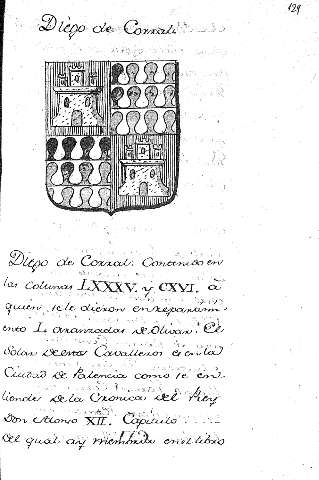 129
Diego de Corral.
Diego de Corral. Contenido en
las colunas LXXXV. y CXVI. a
quien se le dieron en repartimi-
ento L aranzadas de Olivar. El
Solar de estos Cavalleros es en la
Ciudad de Palencia como se en-
tiende de la Cronica del Rey
Don Alonso XII. Capitulo
del qual ay membrado en el libro